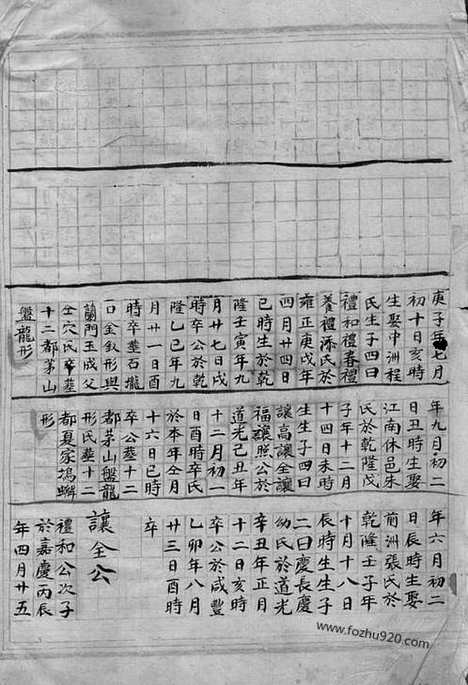 庚子年七月
初十日亥時
生娶中洲程
氏生子四曰
禮和禮春禮
養禮添氏於
雍正庚戌年
四月廿四日
巳時生於乾
隆壬寅年九
月廿七日戌
時卒公於乾
隆乙巳年九
月廿一日酉
時卒葬石壠
口金釵形與
蘭門玉成父
仝穴氏葬
十二都茅山
盤龍形
年九月初二
日丑時生娶
江南休邑朱
氏於乾隆戊
子年十二月
十四日未時
生生子四曰
讓高讓全讓
福讓照公於
道光己丑年
十二月初一
日酉時卒氏
於本年仝月
十六日巳時
卒公葬十二
都茅山盤龍
形氏葬十二
都夏家塢
形
年六月初二
日辰時生娶
前洲張氏於
乾隆壬子年
十月十八日
辰時生生子
二曰慶長慶
幼氏於道光
辛丑年正月
十二日亥時
卒公於咸豐
乙卯年八月
廿三日酉時
卒
讓全公
禮和公次子
於嘉慶丙辰
年四月廿五
www.fozhu920.com